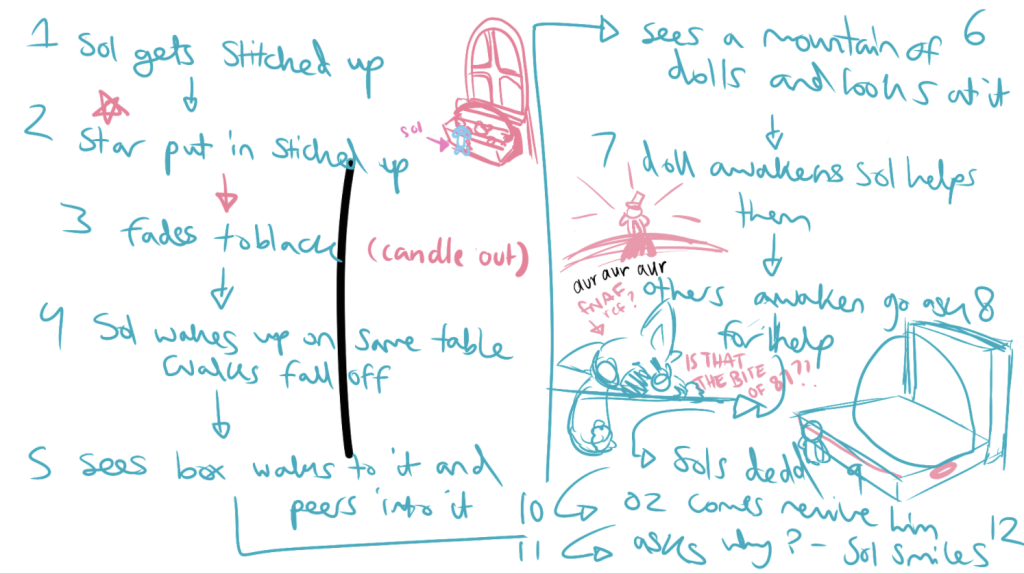 1 Sol gets Stitched up
2 Star put in Stiched up
3 fades to black (candle out)
4 Sol wakes up on same table
Walks fall off
5 sees box walks to it and
peers into it
sol
sees a mountain of 6
dolls and looks at it
7 doll awakens Sol helps
them
aur aur aur
FNAF
ref?
others awaken go ask 8
for help
IS THAT
THE BITE
OF 87?!
Sols dedd 9
10 OZ comes revive him
11 asks why? - Sol smiles 12